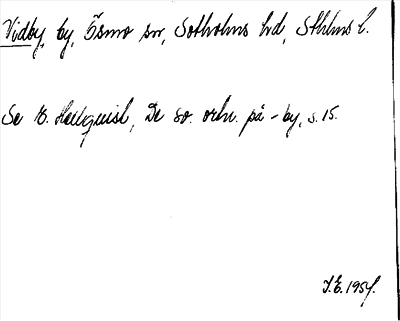 Vidby, by, Ösmo sn, Sotholms hd, Sthlms l.
Se E. Hellquist, De sv. ortn. på -by, s. 15.
J.E. 1954.